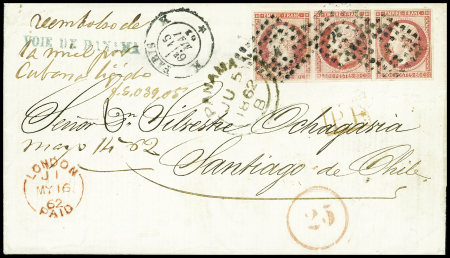 reembolso de
VOIE DE PANAMA
la mil por
Cubana lijido
PARIS
PANAMA
JU 5
1862
B
EMPIRE FRANC
EMPIRE FRANC
EMPIRE FRANC
Señor Dn Silvestre Ochagavia
mayo 14 62
Santiago de Chile
P.D.
LONDON
J1
MY 16
62
PAID
25